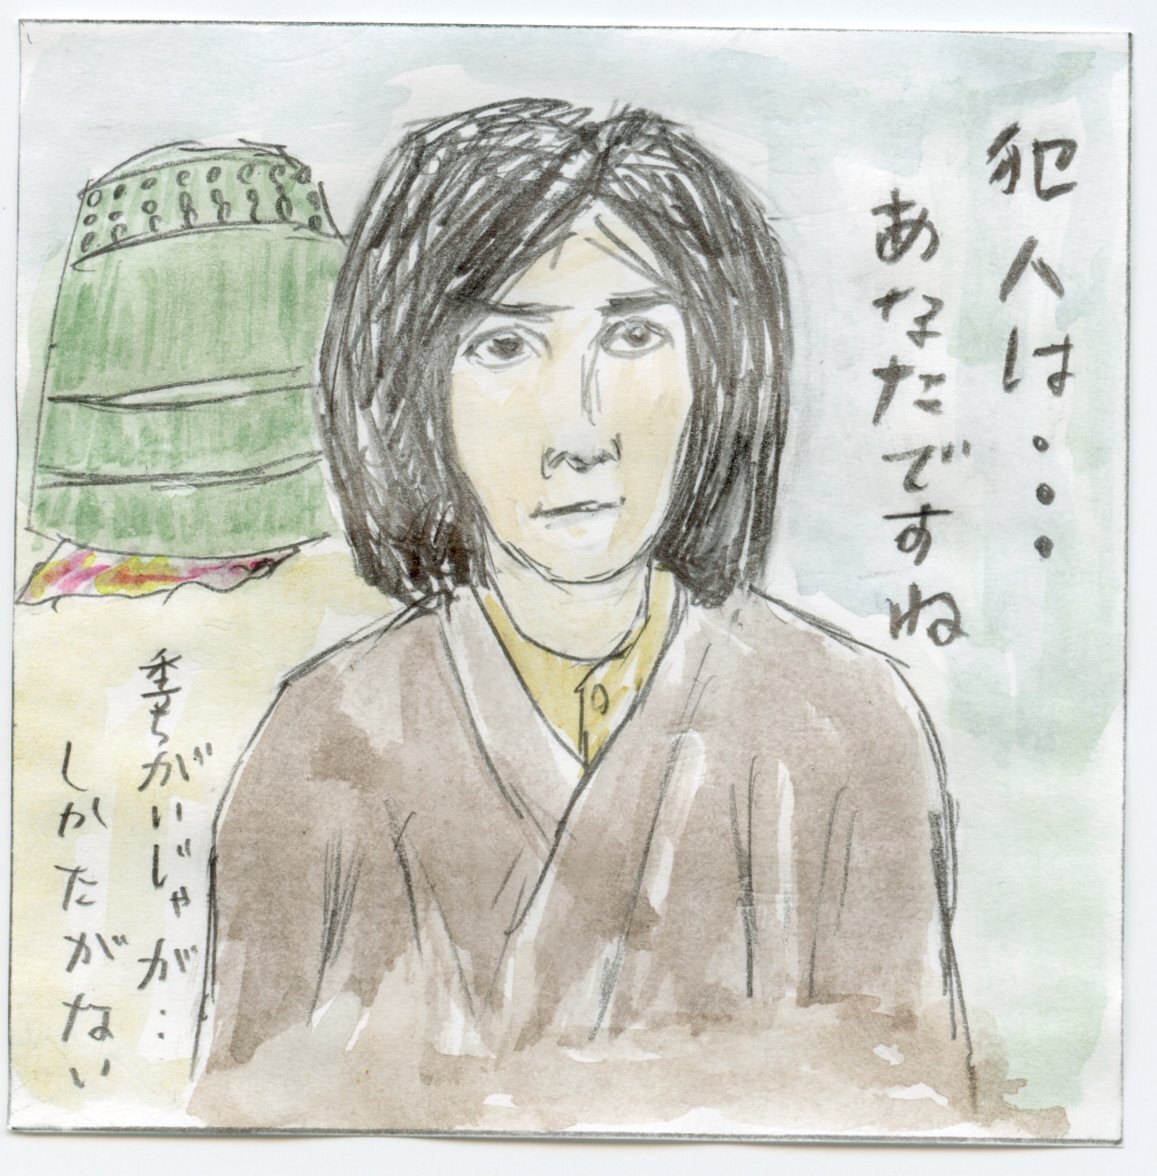 犯人は...
あなたですね
季ちがいじゃが...
しかたがない